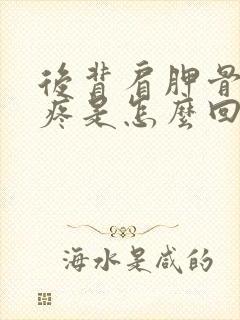 後背肩胛骨
疼是怎麼回
海水是咸的